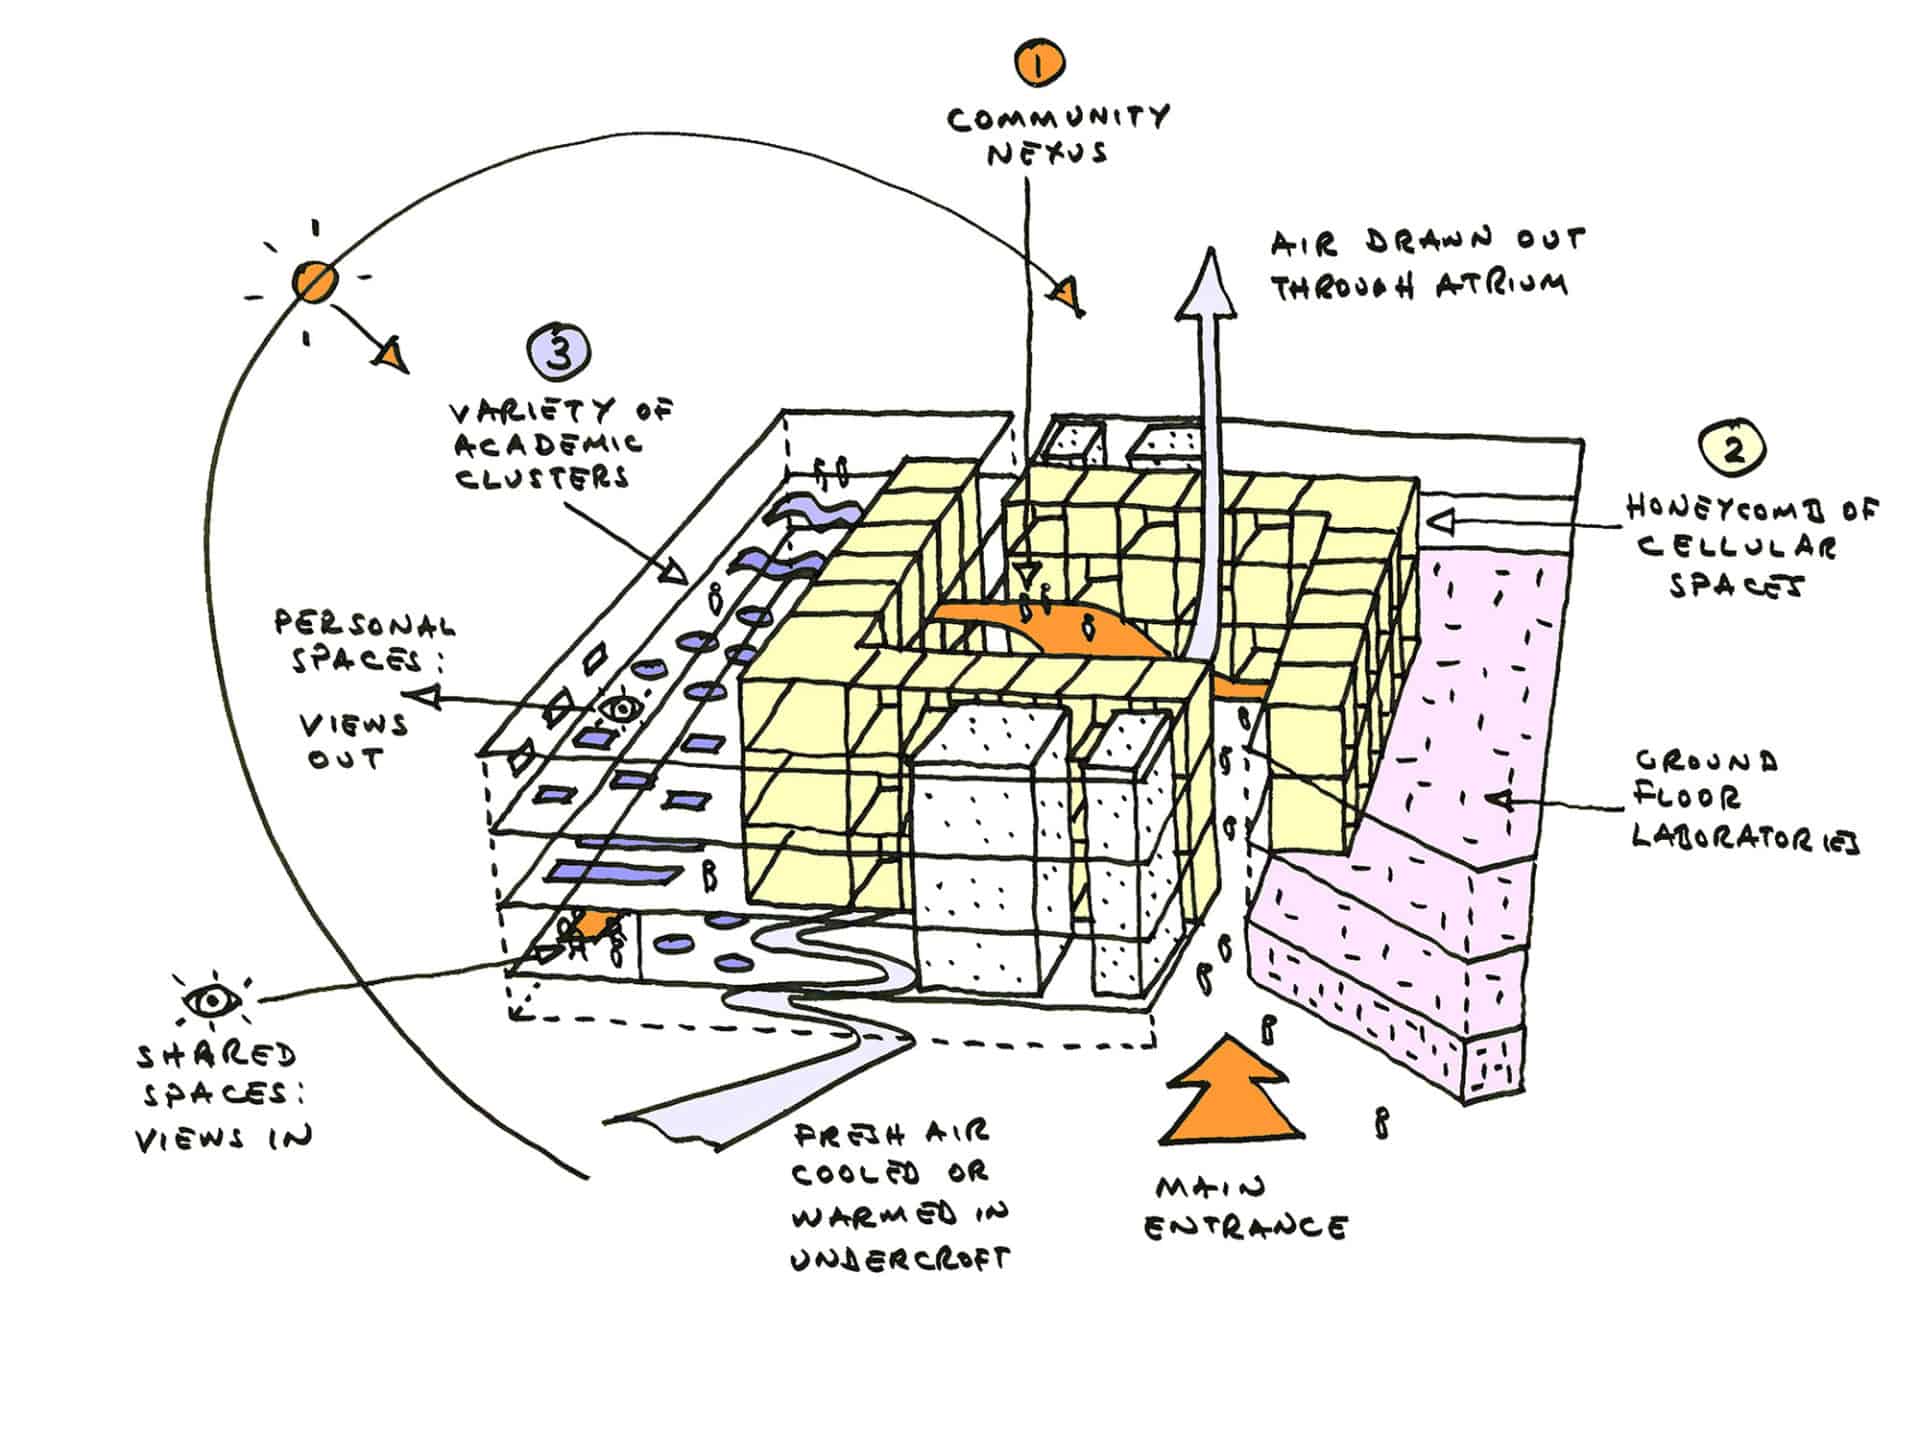 1
COMMUNITY
NEXUS
AIR DRAWN OUT
THROUGH ATRIUM
3
VARIETY OF
ACADEMIC
CLUSTERS
2
HONEYCOMB OF
CELLULAR
SPACES
PERSONAL
SPACES:
VIEWS
OUT
GROUND
FLOOR
LABORATORIES
SHARED
SPACES:
VIEWS IN
FRESH AIR
COOLED OR
WARMED IN
UNDERCROFT
MAIN
ENTRANCE